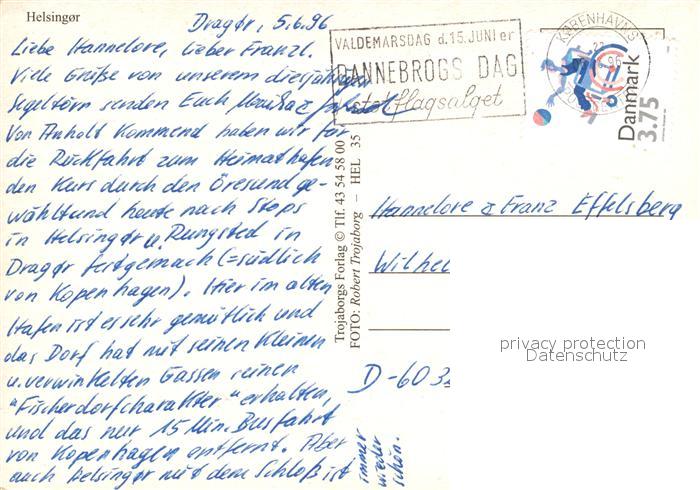 Helsingør
Dragør, 5.6.96
Liebe Hannelore, lieber Franzl,
Viele Grüße von unserem diesjährigen
Segeltörn senden Euch
Von Anholt kommend haben wir für
die Rückfahrt zum Heimathafen
den Kurs durch den Öresund ge-
wählt und heute nach Stops
in Helsingør u. Rungsted in
Dragør festgemacht (= südlich
von Kopenhagen). Hier im alten
Hafen ist es sehr gemütlich und
das Dorf hat mit seinen kleinen
u. verwinkelten Gassen seinen
"Fischerdorfcharakter" erhalten,
und das nur 15 Min. Busfahrt
von Kopenhagen entfernt. Aber
auch Helsingør mit dem Schloß ist
immer
wieder
schön.
Trojaborgs Forlag © Tlf. 43 54 58 00
FOTO: Robert Trojaborg – HEL 35
VALDEMARSDAG d. 15. JUNI er
DANNEBROGS DAG
støt flagsalget
KØBENHAVNS
96
Danmark
3.75
Hannelore & Franz Effelsberg
Wilhel
D-603
privacy protection
Datenschutz